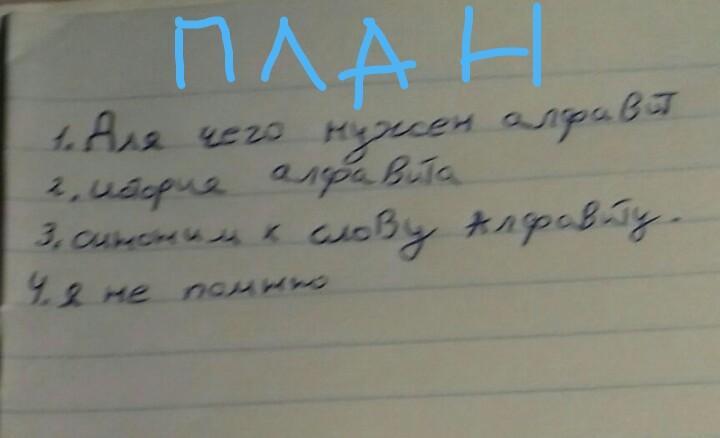 ПЛАН
1. Для чего нужен алфавит
2. история алфавита
3. синоним к слову Алфавиту.
4. я не помню